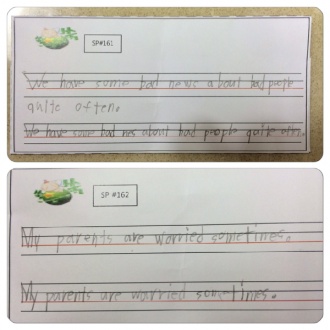 SP#161
We have some bad news about bad people
quite often.
We have some bad nes about bad people quite often.
SP #162
My parents are worried sometimes.
My parents are worried sometimes.